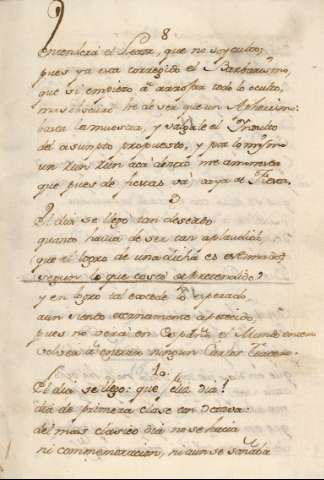 8
entenderá el Letor, que no soy culto;
pues ya esta corregido el Barbarismo,
que si empiezo á arrastrar todo lo oculto,
mas obscuro he de ser que un
basta la muestra, y salgale el Indulto
del asumpto propuesto, y por lo mismo
un run run acá dentro me amonesta
que pues de fiestas vá, vaya de Fiesta.
9
El dia se llegó tan deseado
quanto havia de ser tan aplaudido,
que el logro de una dicha es estimado
segun lo que costó de pretendido;
y en logro tal excede lo esperado
aun siento eternamente apetecido
pues no verá en España el Mundo entero
Carlos Tercero.
10
El dia se llegó: que feliz dia!
dia de primera clase con octava:
del mas clasico dia no se hacia
ni commemoracion, ni aun se soñaba